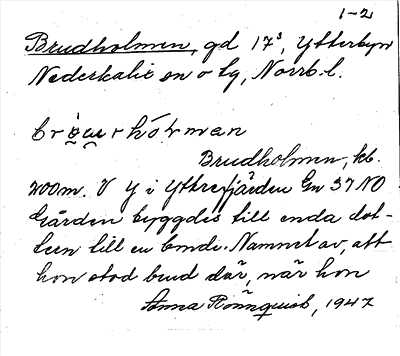 1-2
Brudholmen, gd 17³, Ytterbyn
Nederkalix sn o tg, Norrb. l.
Brudholmen, kb.
200m. V Y i Ytterfjärden Gn 37 NO
Gården byggdes till enda dot-
tern till en bonde. Namnet av, att
hon stod brud där, när hon
Anna Rönnquist, 1947